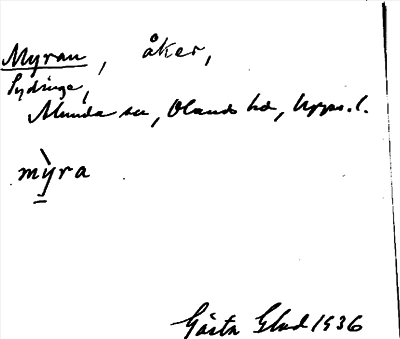 Myran, åker,
Sydinge,
Alunda sn, Olands hd, Upps. l.
mỳra
Gösta Glad 1936